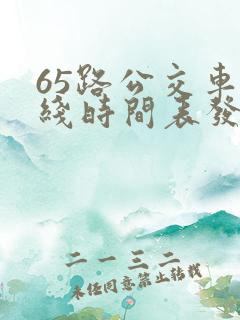 65路公交車
綫時間表發
二一三二
未經同意禁止轉載